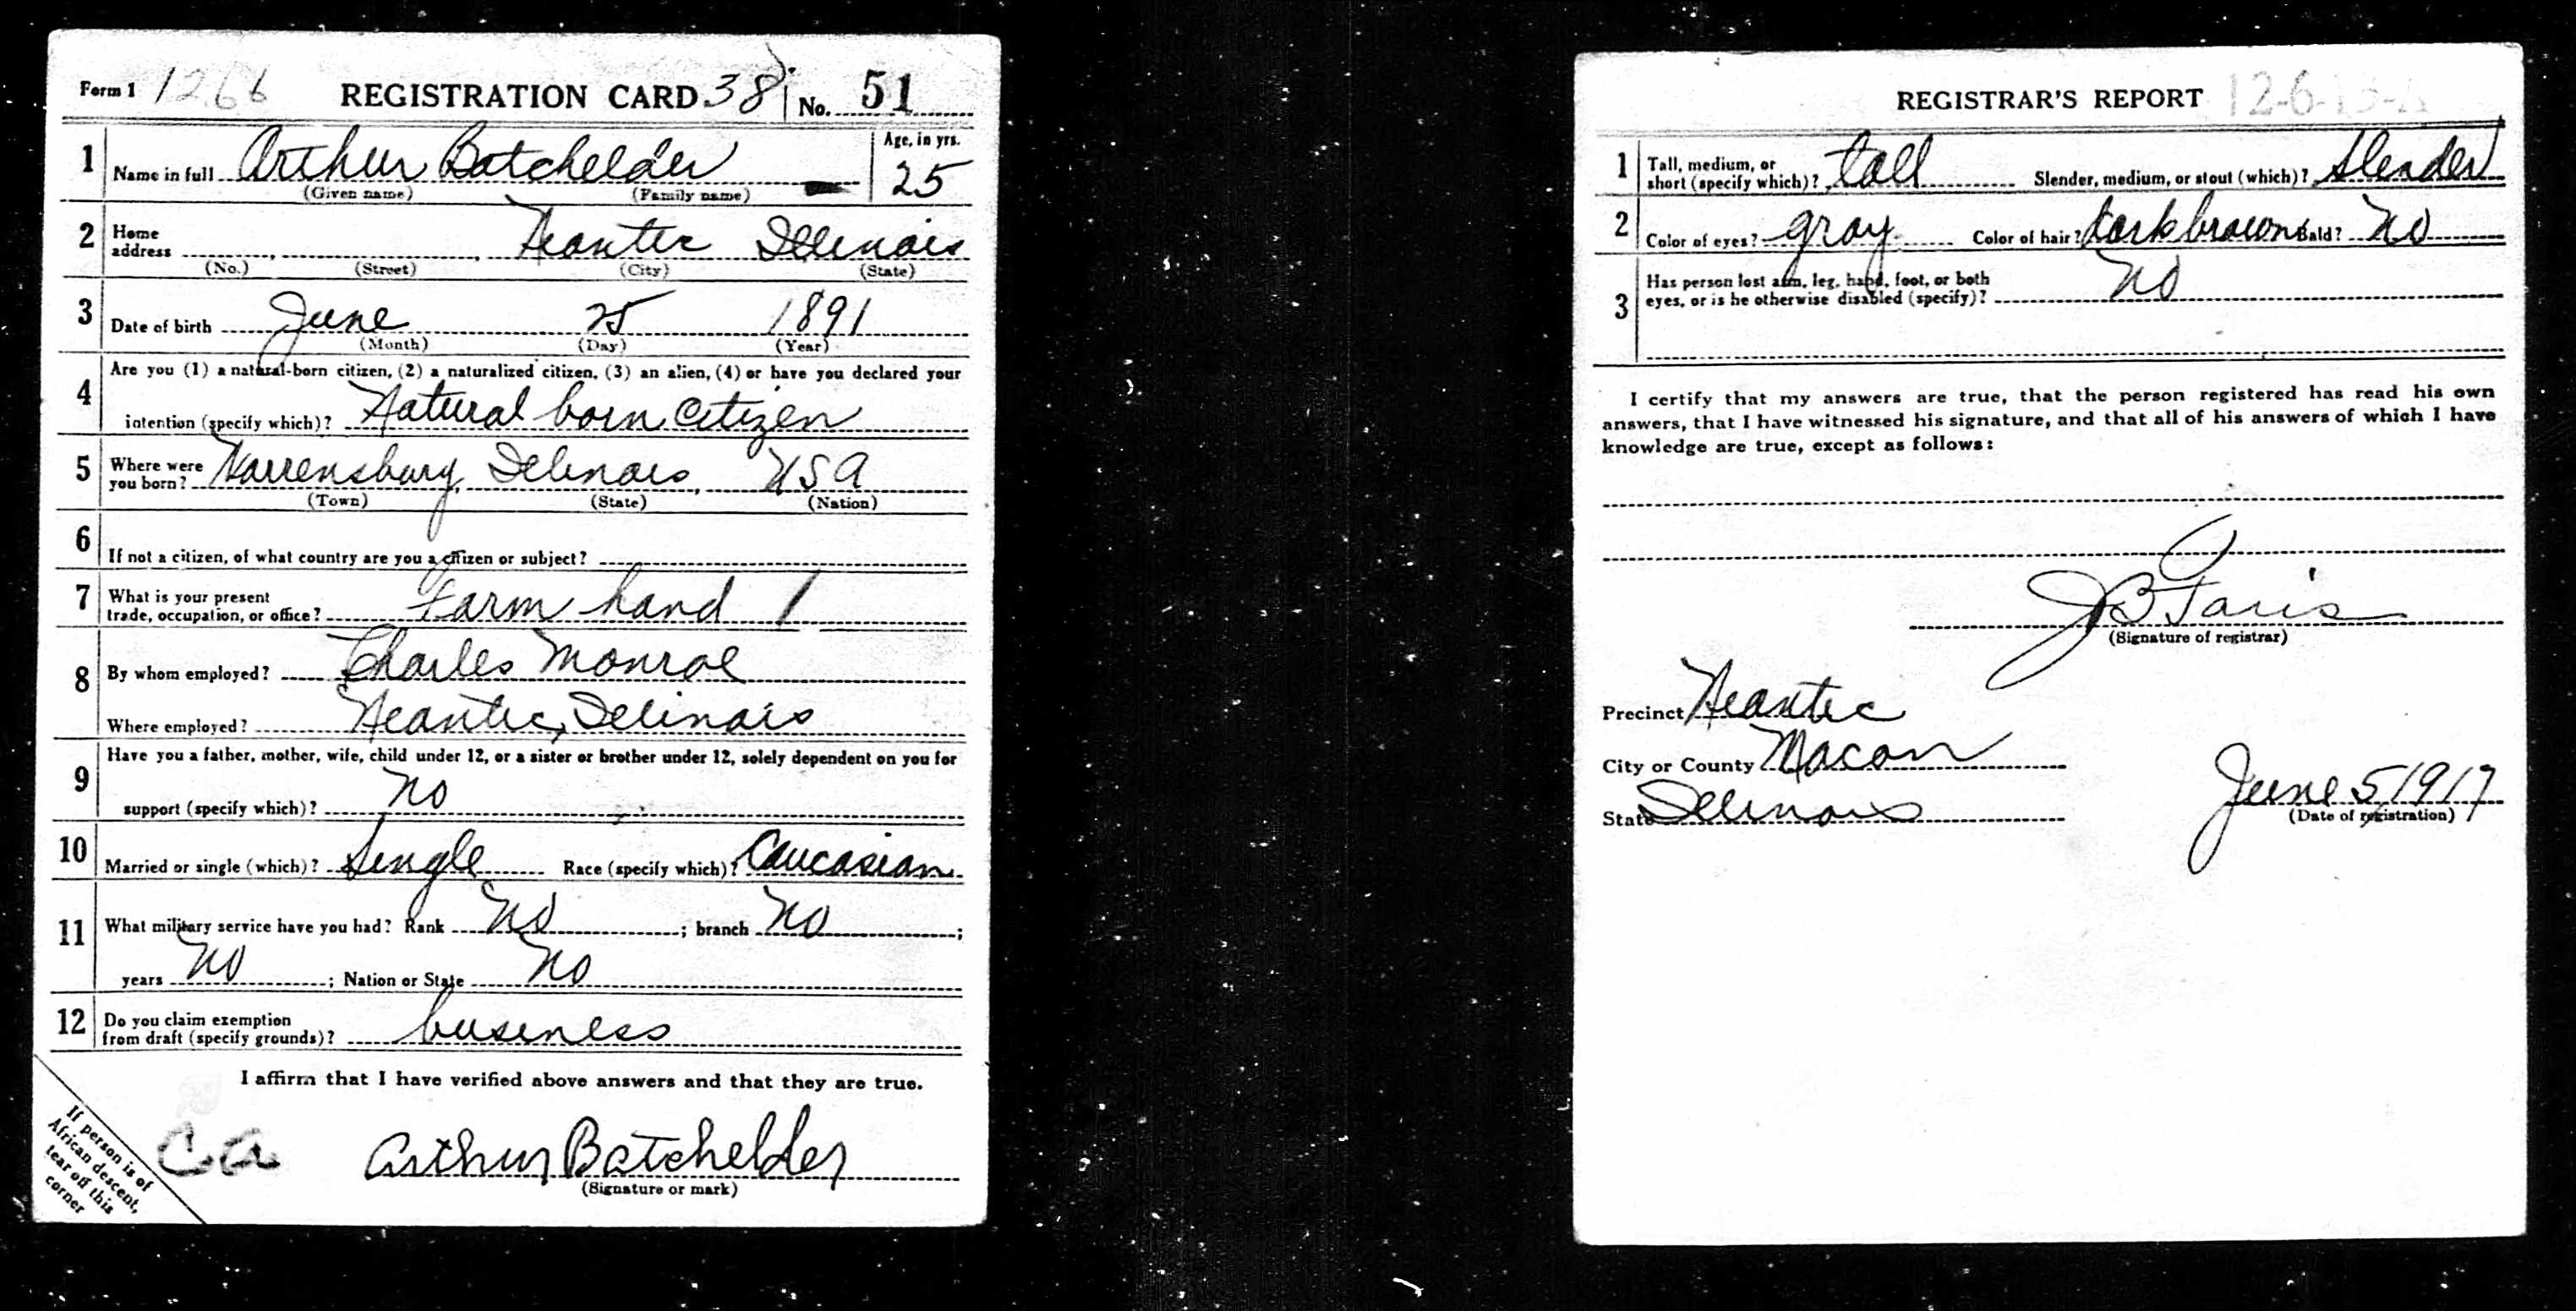 Form 1 1266 REGISTRATION CARD 38 No. 51
1 Name in full Arthur Batchelder Age, in yrs. 25
(Given name) (Family name)
2 Home address Neantic Illinois
(No.) (Street) (City) (State)
3 Date of birth June 25 1891
(Month) (Day) (Year)
4 Are you (1) a natural-born citizen, (2) a naturalized citizen, (3) an alien, (4) or have you declared your
intention (specify which)? Natural born Citizen
5 Where were you born? Warrensburg, Illinois, USA
(Town) (State) (Nation)
6 If not a citizen, of what country are you a citizen or subject?
7 What is your present
trade, occupation, or office? Farm hand 1
8 By whom employed? Charles Monroe
Where employed? Neantic, Illinois
9 Have you a father, mother, wife, child under 12, or a sister or brother under 12, solely dependent on you for
support (specify which)? no
10 Married or single (which)? Single Race (specify which)? Caucasian
11 What military service have you had? Rank no ; branch no ;
years no ; Nation or State no
12 Do you claim exemption
from draft (specify grounds)? business
I affirm that I have verified above answers and that they are true.
If person is of
African descent,
tear off this
corner
C.a.
Arthur Batchelder
(Signature or mark)
REGISTRAR'S REPORT
1 Tall, medium, or
short (specify which)? tall Slender, medium, or stout (which)? Slender
2 Color of eyes? gray Color of hair? dark brown Bald? No
3 Has person lost arm, leg, hand, foot, or both
eyes, or is he otherwise disabled (specify)? No
I certify that my answers are true, that the person registered has read his own
answers, that I have witnessed his signature, and that all of his answers of which I have
knowledge are true, except as follows:
J B Faris
(Signature of registrar)
Precinct Neantic
City or County Macon
State Illinois
June 5 1917
(Date of registration)